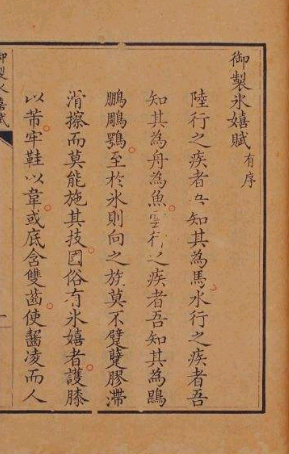 御製氷嬉賦 有序
陸行之疾者吾知其為馬水行之疾者吾
知其為舟為魚雲行之疾者吾知其為鵾
鵬鵰鶚至於氷則向之族莫不躄躠膠滯
滑擦而莫能施其技國俗有氷嬉者護膝
以芾牢鞋以韋或底含雙齒使齧凌而人
御製氷嬉賦